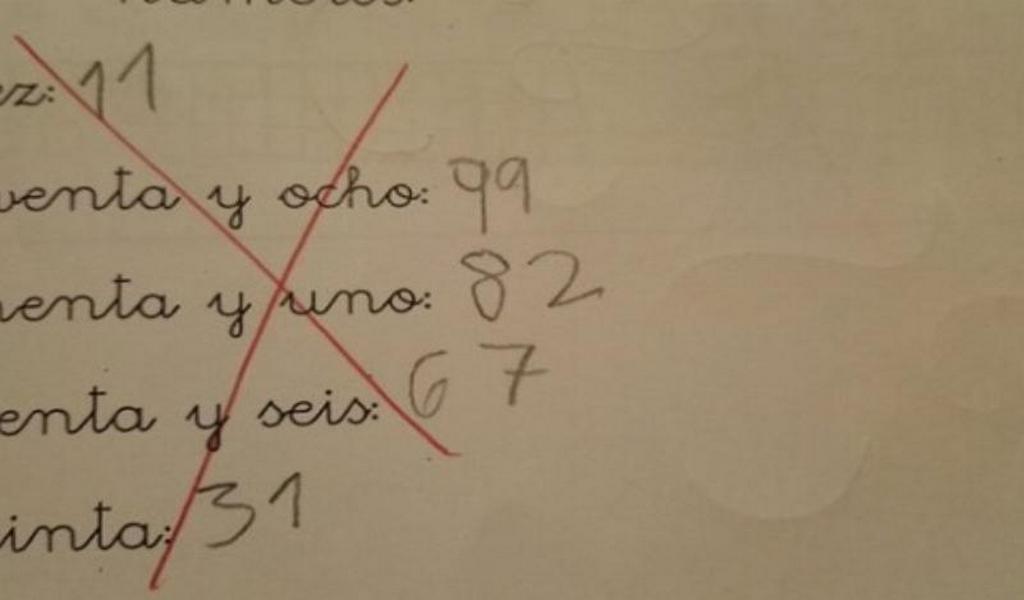 números.
ez: 11
venta y ocho: 99
henta y uno: 82
enta y seis: 67
inta: 31